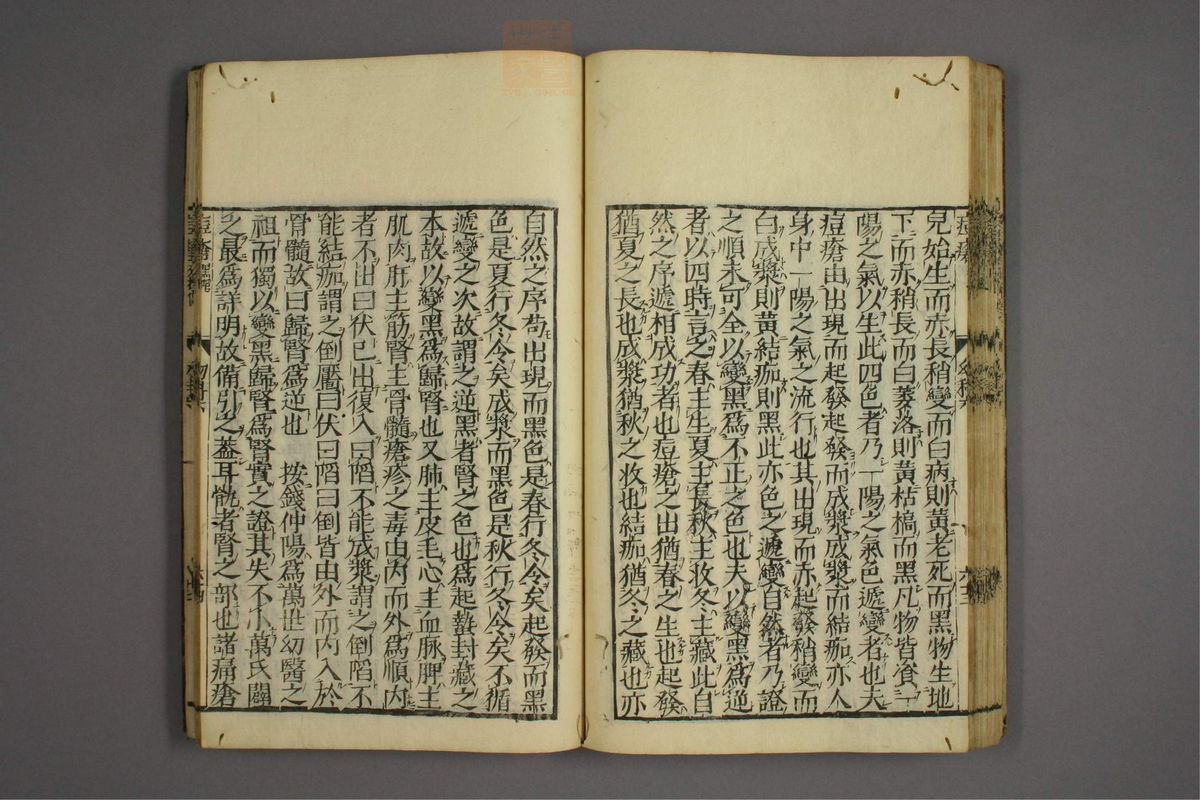 兒始生而赤長稍變而白病則黃老死而黑物生地
下而亦稍長而白萎落則黃枯槁而黑凡物皆食一
陽之氣以生此四色者乃一陽之氣色遞變者也夫
痘瘡由出現而起發起發而成漿成漿而結痂亦人
身中一陽之氣之流行也其出現而赤起發稍變而
白成漿則黃結痂則黑此亦色之遞變自然者乃證
之順未可全以變黑爲不正之色也夫以變黑爲逆
者以四時言之春主生夏主長秋主收冬主藏此自
然之序遞相成功者也痘瘡之出猶春之生也起發
猶夏之長也成漿猶秋之收也結痂猶冬之藏也亦
自然之序苟出現而黑色是春行冬令矣起發而黑
色是夏行冬令矣成漿而黑色是秋行冬令矣不循
遞變之次故謂之逆黑者腎之色也爲起蟄封藏之
本故以變黑爲歸腎也又肺主皮毛心主血脉脾主
肌肉肝主筋腎主骨髓瘡疹之毒由內而外爲順內
者不出曰伏已出復入曰陷不能成漿謂之倒陷不
能結痂謂之倒靨曰伏曰陷曰倒皆由外而內入於
骨髓故曰歸腎爲逆也 按錢仲陽爲萬世幼醫之
祖而獨以變黑歸腎爲腎實之證其失不小萬氏闢
之最爲詳明故備引之蓋耳骫者腎之部也諸痛瘡